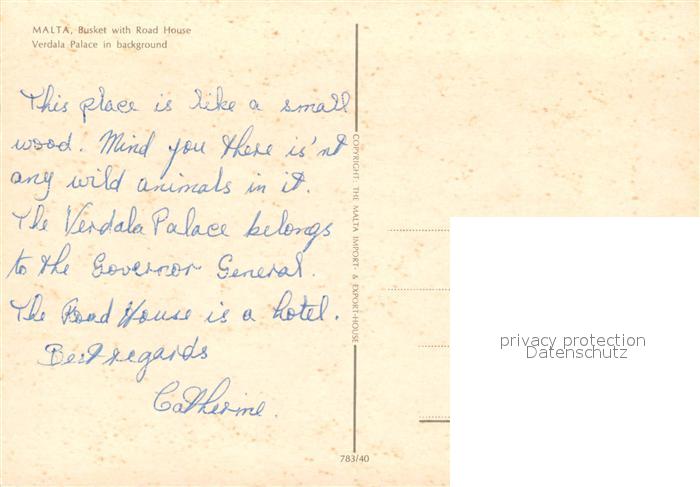 MALTA, Busket with Road House
Verdala Palace in background
This place is like a small
wood. Mind you there is'nt
any wild animals in it.
The Verdala Palace belongs
to the Governor General.
The Road House is a hotel.
Best regards
Catherine.
COPYRIGHT: THE MALTA IMPORT- & EXPORT-HOUSE
783/40
privacy protection
Datenschutz